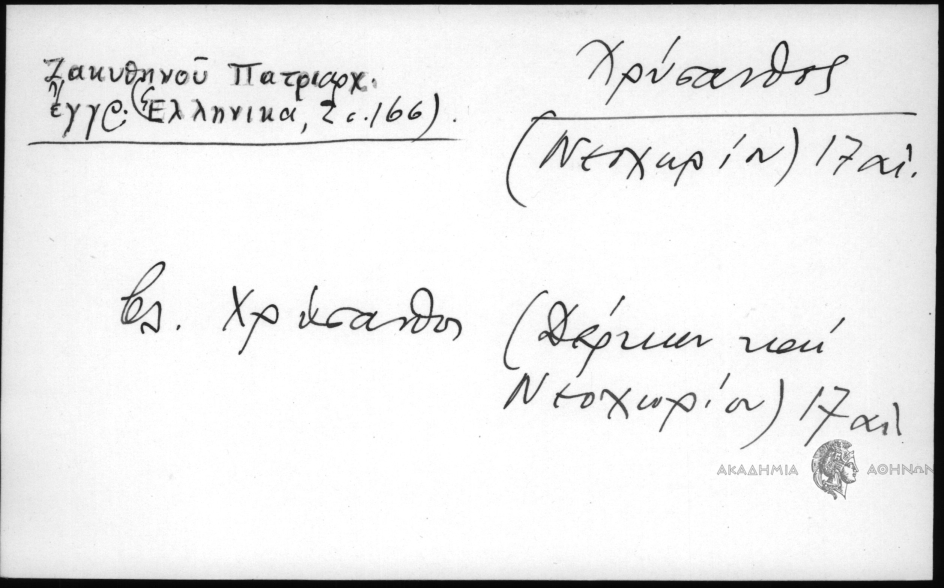 Ζακυθηνοῦ Πατριαρχ.
ἔγγρ. (Ἑλληνικά, 2 σ. 166).
Χρύσανθος
(Νεοχωρίου) 17 αἰ.
βλ. Χρύσανθος (Δέρκων καί
Νεοχωρίου) 17 αἰ
ΑΚΑΔΗΜΙΑ ΑΘΗΝΩΝ